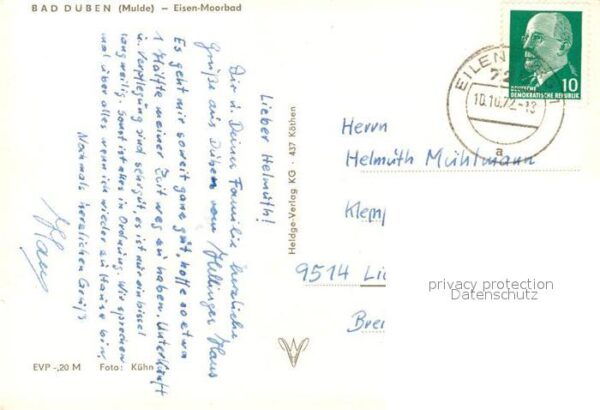 BAD DÜBEN (Mulde) – Eisen-Moorbad
Lieber Helmuth!
Dir u. Deiner Familie herzliche
Grüße aus Düben vom Haus
Es geht mir soweit ganz gut, hoffe so etwa
1 Hälfte meiner Zeit weg zu haben. Unterkunft
u. Verpflegung sind sehr gut, es ist nur ein bissel
langweilig. Sonst ist alles in Ordnung. Wir sprechen
mal über alles wenn ich wieder zu Hause bin.
Nochmals herzlichen Gruß
Hans
EVP -,20 M Foto: Kühn
Heldge-Verlag KG · 437 Köthen
10
DEUTSCHE
DEMOKRATISCHE REPUBLIK
EILEN
10.10.72-18
a
Herrn
Helmuth Mühlmann
Klemp
9514 Lic
Brei
privacy protection
Datenschutz